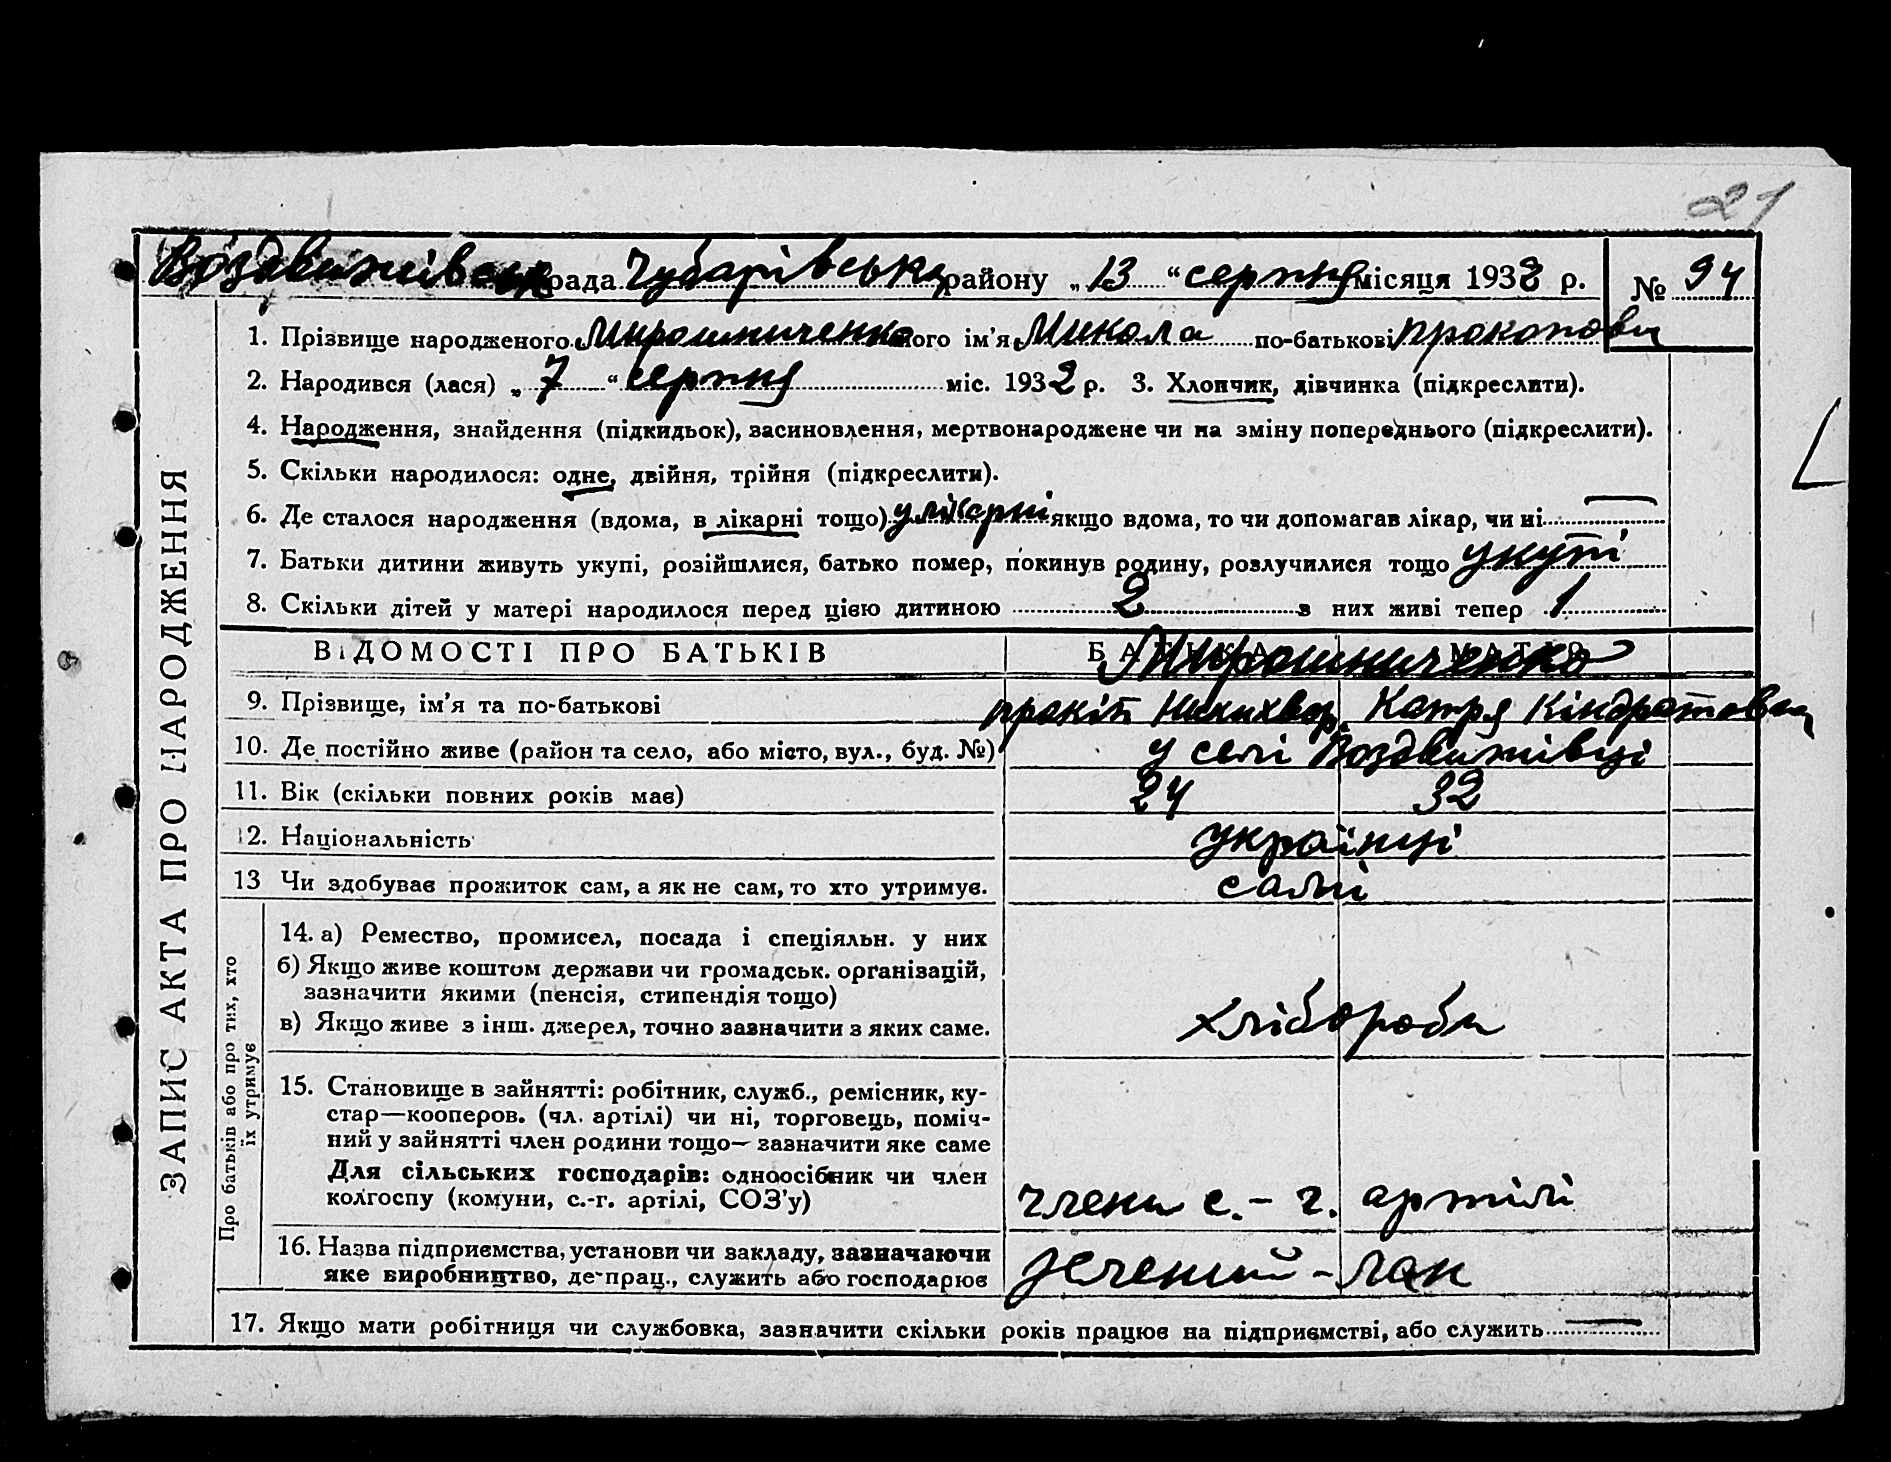 21
Воздвижівськ рада Чубарівськ району „13“ серпня місяця 1932 р. № 94
1. Прізвище народженого Мирошниченко його ім'я Микола по-батькові прокопович
2. Народився (лася) „7“ серпня міс. 1932 р. 3. Хлопчик, дівчинка (підкреслити).
4. Народження, знайдення (підкидьок), засиновлення, мертвонароджене чи на зміну попереднього (підкреслити).
5. Скільки народилося: одне, двійня, трійня (підкреслити).
6. Де сталося народження (вдома, в лікарні тощо) у лікарні якщо вдома, то чи допомагав лікар, чи ні —
7. Батьки дитини живуть укупі, розійшлися, батько помер, покинув родину, розлучилися тощо укупі
8. Скільки дітей у матері народилося перед цією дитиною 2 з них живі тепер 1
ВІДОМОСТІ ПРО БАТЬКІВ БАТЬКА МАТІР
Мирошниченко
9. Прізвище, ім'я та по-батькові прокіп Никихвор. Катря Кіндратовн
10. Де постійно живе (район та село, або місто, вул., буд. №) у селі Воздвижівці
11. Вік (скільки повних років має) 24 32
12. Національність українці
13 Чи здобуває прожиток сам, а як не сам, то хто утримує. самі
14. а) Ремество, промисел, посада і спеціяльн. у них
б) Якщо живе коштом держави чи громадськ. організацій,
зазначити якими (пенсія, стипендія тощо)
в) Якщо живе з інш. джерел, точно зазначити з яких саме. хлібороби
15. Становище в зайнятті: робітник, служб., ремісник, ку-
стар—кооперов. (чл. артілі) чи ні, торговець, поміч-
ний у зайнятті член родини тощо— зазначити яке саме
Для сільських господарів: одноосібник чи член
колгоспу (комуни, с.-г. артілі, СОЗ'у) члени с.-г. артілі
16. Назва підприємства, установи чи закладу, зазначаючи
яке виробництво, де прац., служить або господарює зелений-лан
17. Якщо мати робітниця чи службовка, зазначити скільки років працює на підприємстві, або служить —
ЗАПИС АКТА ПРО НАРОДЖЕННЯ
Про батьків або про тих, хто
їх утримує